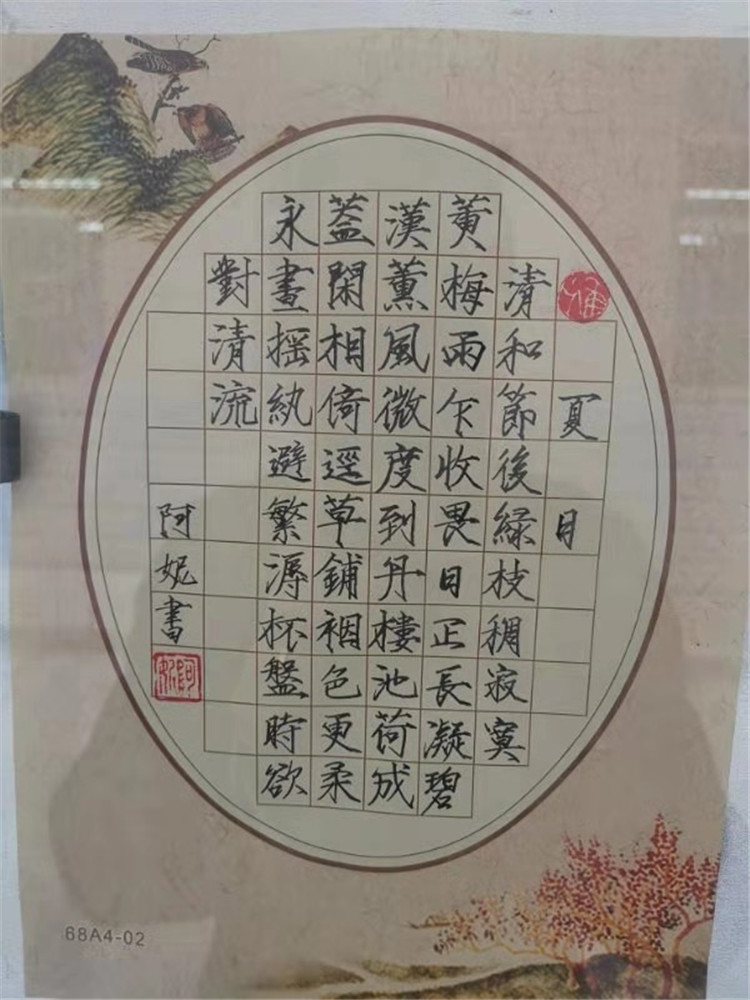 雅
夏日
清和節後綠枝稠寂寞
黄梅雨乍收畏日正長凝碧
漢薰風微度到丹樓池荷成
蓋閑相倚逕草鋪裀色更柔
永晝摇紈避繁溽杯盤時欲
對清流
阿妮書
阿妮
68A4-02